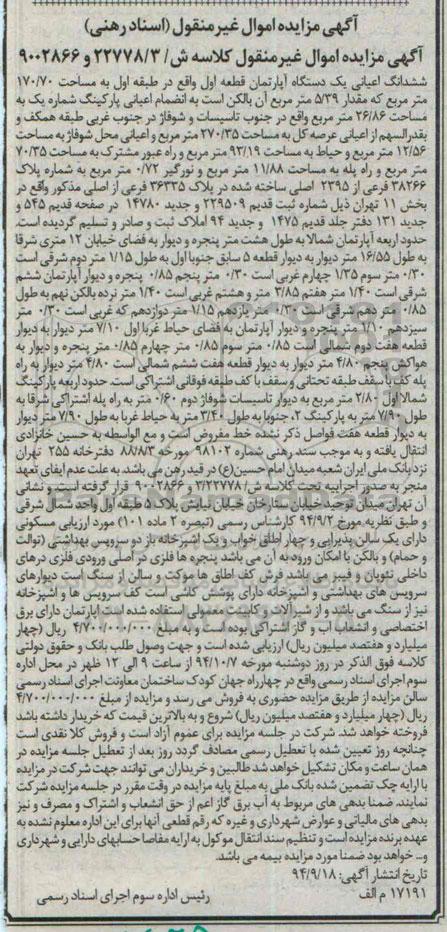 آگهی مزایده اموال غیرمنقول (اسناد رهنی)
آگهی مزایده اموال غیرمنقول کلاسه ش/ ۲۲۷۷۸/۳ و ۹۰۰۲۸۶۶
ششدانگ اعیانی یک دستگاه آپارتمان قطعه اول واقع در طبقه اول به مساحت ۱۷۰/۷۰
متر مربع که مقدار ۵/۳۹ متر مربع آن بالکن است به انضمام اعیانی پارکینگ شماره یک به
مساحت ۲۶/۸۶ متر مربع واقع در جنوب تاسیسات و شوفاژ در جنوب غربی طبقه همکف و
بقدرالسهم از اعیانی عرصه کل به مساحت ۲۷۰/۳۵ متر مربع و اعیانی محل شوفاژ به مساحت
۱۲/۵۶ متر مربع و حیاط به مساحت ۹۳/۱۹ متر مربع و راه عبور مشترک به مساحت ۷۰/۳۵
متر مربع و راه پله به مساحت ۱۱/۸۸ متر مربع و نورگیر ۰/۷۲ متر مربع به شماره پلاک
۳۸۲۶۶ فرعی از ۲۳۹۵ اصلی ساخته شده در پلاک ۳۶۳۳۵ فرعی از اصلی مذکور واقع در
بخش ۱۱ تهران ذیل شماره ثبت قدیم ۲۲۹۵۰۹ و جدید ۱۴۷۸۰ در صفحه قدیم ۵۴۵ و
جدید ۱۳۱ دفتر جلد قدیم ۱۴۷۵ و جدید ۹۴ املاک ثبت و صادر و تسلیم گردیده است.
حدود اربعه آپارتمان شمالا به طول هشت متر پنجره و دیوار به فضای خیابان ۱۲ متری شرقا
به طول ۱۶/۵۵ متر دیوار به دیوار قطعه ۵ سابق جنوبا اول به طول ۱/۱۵ متر دوم شرقی است
۰/۳۰ متر سوم ۱/۳۵ چهارم غربی است ۰/۳۰ متر پنجم ۰/۸۵ پنجره و دیوار آپارتمان ششم
شرقی است ۱/۴۰ متر هفتم ۳/۸۵ متر و هشتم غربی است ۱/۴۰ متر نرده بالکن نهم به طول
۰/۸۵ متر دهم شرقی است ۰/۳۰ متر یازدهم ۱/۱۵ متر دوازدهم که غربی است ۰/۳۰ متر
سیزدهم ۱/۱۰ متر پنجره و دیوار آپارتمان به فضای حیاط غربا اول ۷/۱۰ متر دیوار به دیوار
قطعه هفت دوم شمالی است ۰/۸۵ متر سوم ۰/۸۵ متر چهارم ۰/۸۵ متر پنجره و دیوار به
هواکش پنجم ۴/۸۰ متر دیوار به دیوار قطعه هفت ششم شمالی است ۴/۸۰ متر دیوار به راه
پله کف با سقف طبقه تحتانی و سقف با کف طبقه فوقانی اشتراکی است. حدود اربعه پارکینگ
شمالا اول ۲/۸۰ متر مربع به دیوار تاسیسات شوفاژ دوم ۰/۶۰ متر به راه پله اشتراکی شرقا به
طول ۷/۹۰ متر به پارکینگ ۲، جنوبا به طول ۳/۴۰ متر به حیاط غربا به طول ۷/۹۰ متر دیوار
به دیوار قطعه هفت فواصل ذکر نشده خط مفروض است و مع الواسطه به حسین خانزادی
انتقال یافته و به موجب سند رهنی شماره ۹۸۱۰۲ مورخه ۸۸/۸/۳ دفترخانه ۲۵۵ تهران
نزد بانک ملی ایران شعبه میدان امام حسین(ع) در قید رهن می باشد به علت عدم ایفای تعهد
منجر به صدور اجراییه تحت کلاسه ش/ ۳/۲۲۷۷۸ و ۹۰۰۲۸۶۶ قرار گرفته است و نشانی
آن تهران میدان توحید خیابان ستارخان خیابان نیایش پلاک ۵ طبقه اول واحد شمال شرقی
و طبق نظریه مورخ ۹۴/۹/۲ کارشناس رسمی (تبصره ۲ ماده ۱۰۱) مورد ارزیابی مسکونی
دارای یک سالن پذیرایی و چهار اطاق خواب و یک آشپزخانه باز دو سرویس بهداشتی (توالت
و حمام) و بالکن با امکان ورود به آن می باشد پنجره ها فلزی در اصلی ورودی فلزی درهای
داخلی نئوپان و فیبر می باشد فرش کف اطاق ها موکت و سالن از سنگ است دیوارهای
سرویس های بهداشتی و آشپزخانه دارای پوشش کاشی است کف سرویس ها و آشپزخانه
نیز از سنگ می باشد و از شیرآلات و کابینت معمولی استفاده شده است آپارتمان دارای برق
اختصاصی و انشعاب آب و گاز اشتراکی بوده است و به مبلغ ۴/۷۰۰/۰۰۰/۰۰۰ ریال (چهار
میلیارد و هفتصد میلیون ریال) ارزیابی شده است و جهت وصول طلب بانک و حقوق دولتی
کلاسه فوق الذکر در روز دوشنبه مورخه ۹۴/۱۰/۷ از ساعت ۹ الی ۱۲ ظهر در محل اداره
سوم اجرای اسناد رسمی واقع در چهارراه جهان کودک ساختمان معاونت اجرای اسناد رسمی
سالن مزایده از طریق مزایده حضوری به فروش می رسد و مزایده از مبلغ ۴/۷۰۰/۰۰۰/۰۰۰
ریال (چهار میلیارد و هفتصد میلیون ریال) شروع و به بالاترین قیمت که خریدار داشته باشد
فروخته خواهد شد. شرکت در جلسه مزایده برای عموم آزاد است و فروش کلا نقدی است
چنانچه روز تعیین شده با تعطیل رسمی مصادف گردد روز بعد از تعطیل جلسه مزایده در
همان ساعت و مکان تشکیل خواهد شد طالبین و خریداران می توانند جهت شرکت در مزایده
با ارایه چک تضمین شده بانک ملی به مبلغ پایه مزایده در وقت مقرر در جلسه مزایده شرکت
نمایند. ضمنا بدهی های مربوط به آب برق گاز اعم از حق انشعاب و اشتراک و مصرف و نیز
بدهی های مالیاتی و عوارض شهرداری و غیره که رقم قطعی آنها برای این اداره معلوم نشده به
عهده برنده مزایده است و تنظیم سند انتقال موکول به ارایه مفاصا حسابهای دارایی و شهرداری
و... خواهد بود ضمنا مورد مزایده بیمه می باشد.
تاریخ انتشار آگهی: ۹۴/۹/۱۸
۱۷۱۹۱ م الف
رئیس اداره سوم اجرای اسناد رسمی